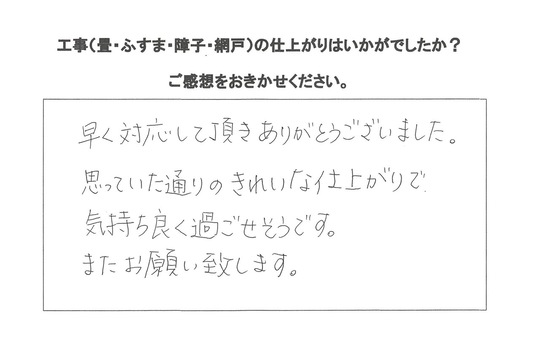 工事(畳・ふすま・障子・網戸)の仕上がりはいかがでしたか？
ご感想をおきかせください。
早く対応して頂きありがとうございました。
思っていた通りのきれいな仕上がりで
気持ち良く過ごせそうです。
またお願い致します。